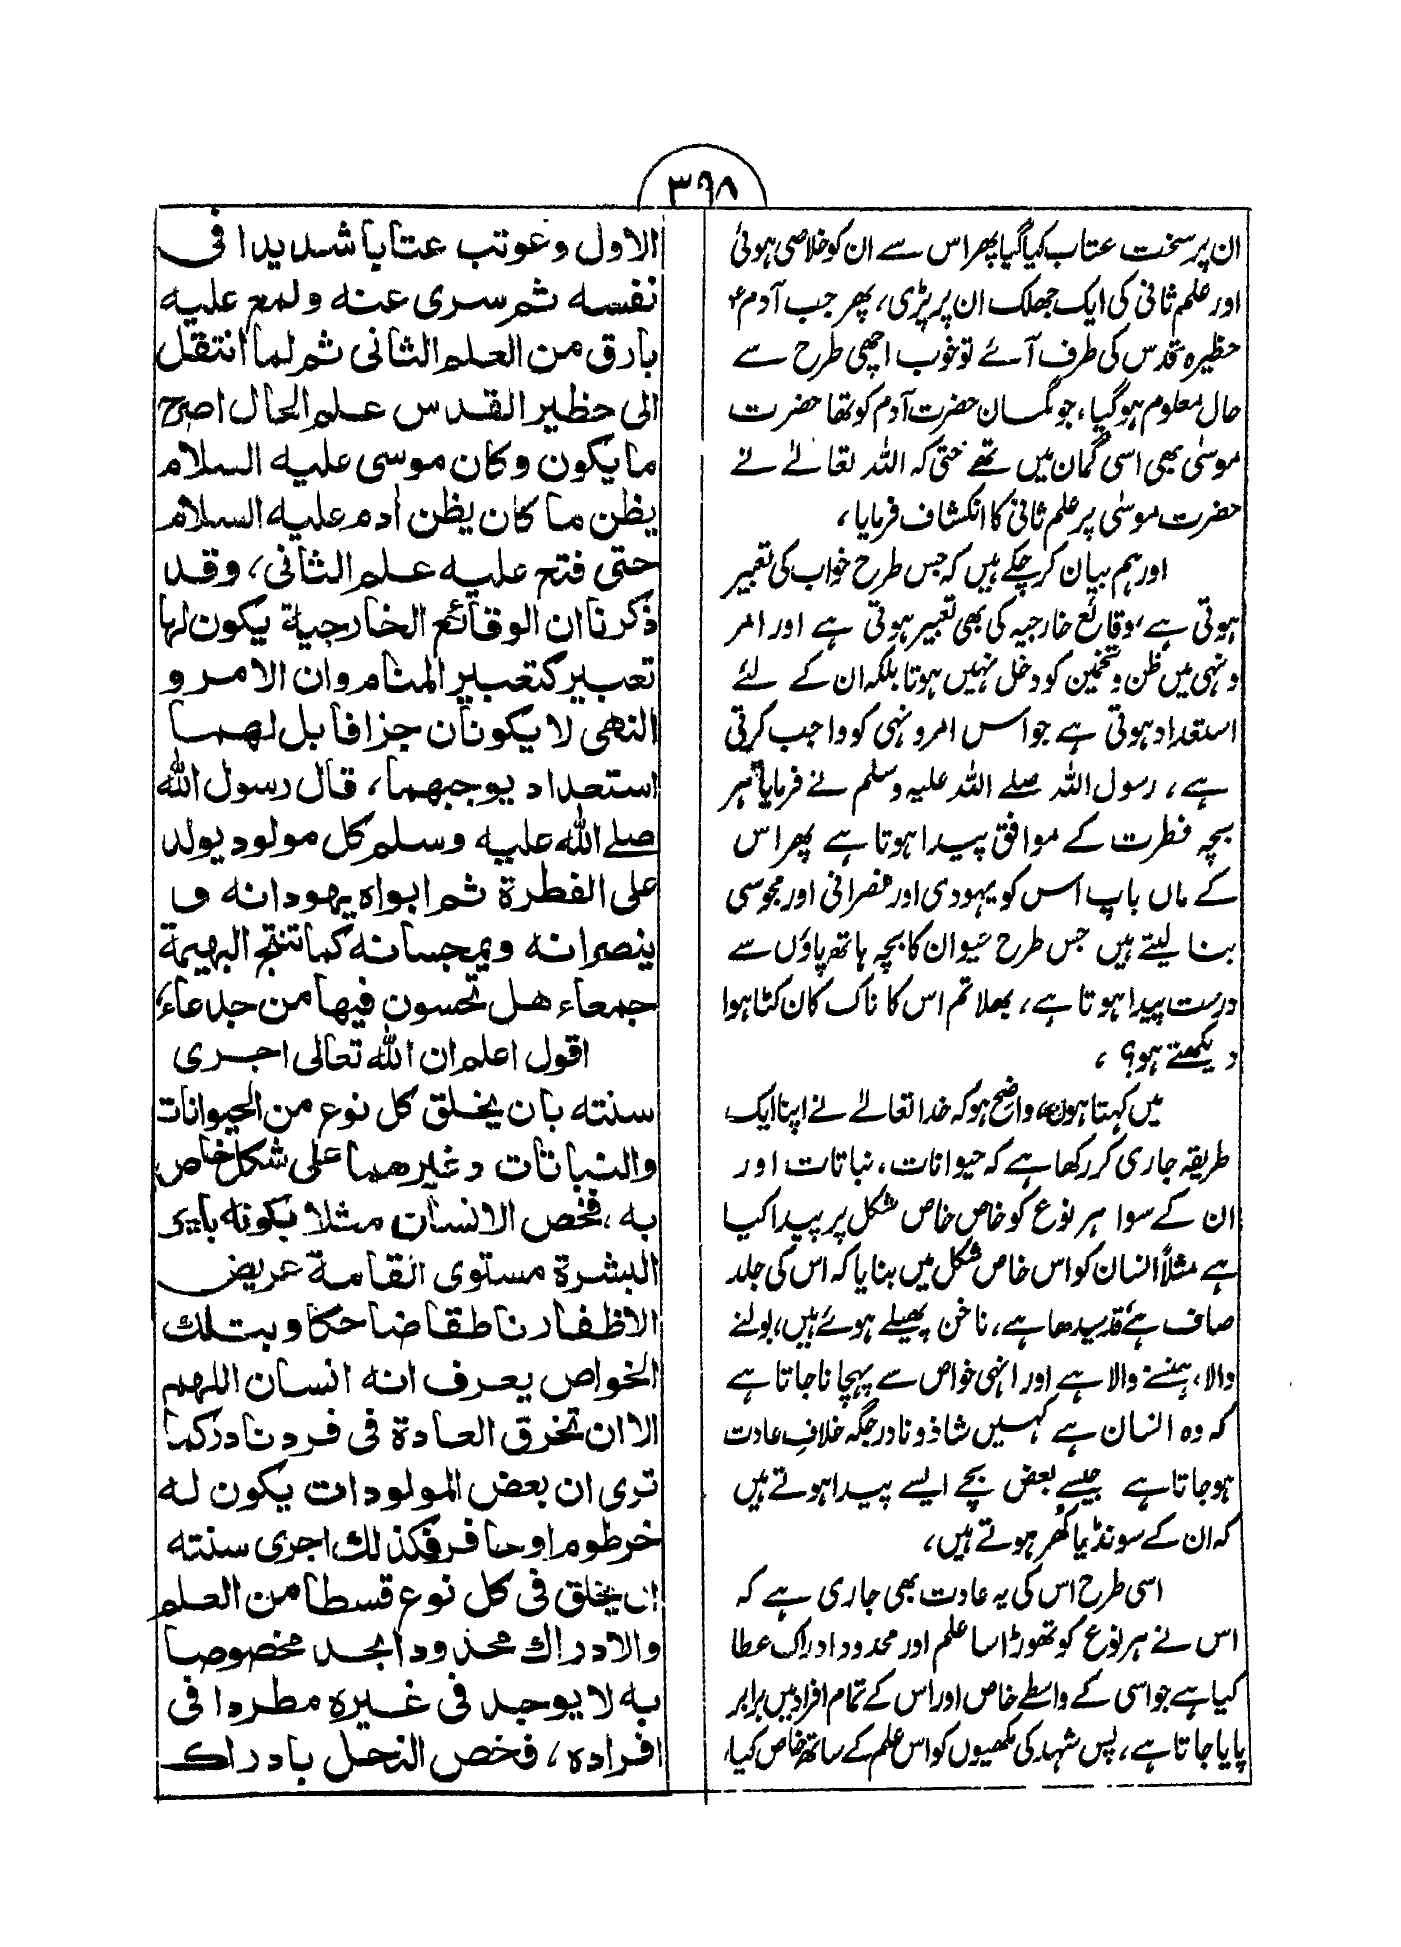 ۳۹۸
ان پر سخت عتاب کیا گیا پھر اس سے ان کو خلاصی ہوئی
اور علم ثانی کی ایک جھلک ان پر پڑی، پھر جب آدم ؑ
حظیرہ قدس کی طرف آئے تو خوب اچھی طرح سے
حال معلوم ہو گیا، جو گمان حضرت آدم کو تھا حضرت
موسیٰ بھی اسی گمان میں تھے حتیٰ کہ اللہ تعالےٰ نے
حضرت موسیٰ پر علم ثانی کا انکشاف فرمایا،
اور ہم بیان کر چکے ہیں کہ جس طرح خواب کی تعبیر
ہوتی ہے، وقائع خارجیہ کی بھی تعبیر ہوتی ہے اور امر
و نہی میں ظن و تخمین کو دخل نہیں ہوتا بلکہ ان کے لئے
استعداد ہوتی ہے جو اس امر و نہی کو واجب کرتی
ہے، رسول اللہ صلے اللہ علیہ وسلم نے فرمایا "ہر
بچہ فطرت کے موافق پیدا ہوتا ہے پھر اس
کے ماں باپ اس کو یہودی اور نصرانی اور مجوسی
بنا لیتے ہیں جس طرح حیوان کا بچہ ہاتھ پاؤں سے
درست پیدا ہوتا ہے، بھلا تم اس کا ناک کان کٹا ہوا
دیکھتے ہو؟ ،
میں کہتا ہوں، واضح ہو کہ خدا تعالےٰ نے اپنا ایک
طریقہ جاری کر رکھا ہے کہ حیوانات، نباتات اور
ان کے سوا ہر نوع کو خاص خاص شکل پر پیدا کیا
ہے مثلاً انسان کو اس خاص شکل میں بنایا کہ اس کی جلد
صاف ہے قد سیدھا ہے، ناخن پھیلے ہوئے ہیں، بولنے
والا، ہنسنے والا ہے اور انہی خواص سے پہچانا جاتا ہے
کہ وہ انسان ہے کہیں شاذ و نادر جگہ خلافِ عادت
ہو جاتا ہے جیسے بعض بچے ایسے پیدا ہوتے ہیں
کہ ان کے سونڈ یا کھر ہوتے ہیں،
اسی طرح اس کی یہ عادت بھی جاری ہے کہ
اس نے ہر نوع کو تھوڑا سا علم اور محدود ادراک عطا
کیا ہے جو اسی کے واسطے خاص اور اس کے تمام افراد میں برابر
پایا جاتا ہے، پس شہد کی مکھیوں کو اس علم کے ساتھ خاص کیا،
الاول وعوتب عتابا شديدا في
نفسه ثم سرى عنه ولمع عليه
بارق من العلم الثانى ثم لما انتقل
الى حظير القدس علم الحال اصرح
ما يكون وكان موسى عليه السلام
يظن ما كان يظن آدم عليه السلام
حتى فتح عليه علم الثانى، وقد
ذكرنا ان الوقائع الخارجية يكون لها
تعبير كتعبير المنام وان الامر و
النهى لا يكونان جزافا بل لهما
استعداد يوجبهما، قال رسول الله
صلے الله عليه وسلم كل مولود يولد
على الفطرة ثم ابواه يهودانه و
ينصرانه ويمجسانه كما تنتج البهيمة
جمعاء هل تحسون فيها من جدعاء،
اقول اعلم ان الله تعالى اجرى
سنته بان يخلق كل نوع من الحيوانات
والنباتات وغيرهما على شكل خاص
به، فخص الانسان مثلا بكونه بادى
البشرة مستوى القامة عريض
الاظفار ناطقا ضاحكا وبتلك
الخواص يعرف انه انسان اللهم
الا ان تخرق العادة في فرد نادر كما
ترى ان بعض المولودات يكون له
خرطوم او حافر فكذلك اجرى سنته
ان يخلق في كل نوع قسطا من العلم
والادراك محدودا بحد مخصوصا
به لا يوجد في غيره مطردا في
افراده، فخص النحل بادراك